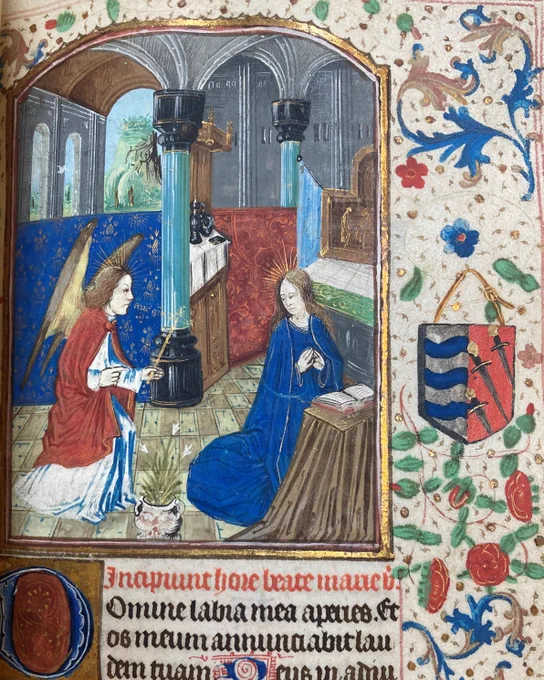 Incipiunt hore beate marie v̄
Domine labia mea aperies. Et
os meum annunciabit lau
dem tuam Deus in adiu